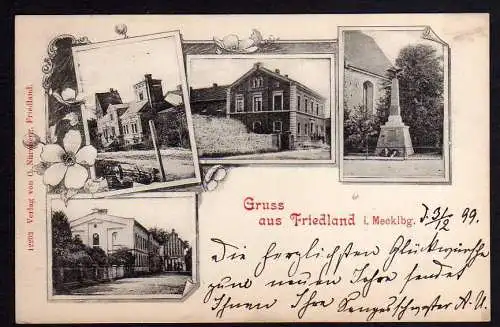 Gruss
aus Friedland i. Mecklbg.
12293 Verlag von O. Nürnberg, Friedland.
31/12 99.
Die herzlichsten Glückwünsche
zum neuen Jahre sendet
Ihnen Ihre Sangesschwester A. U.